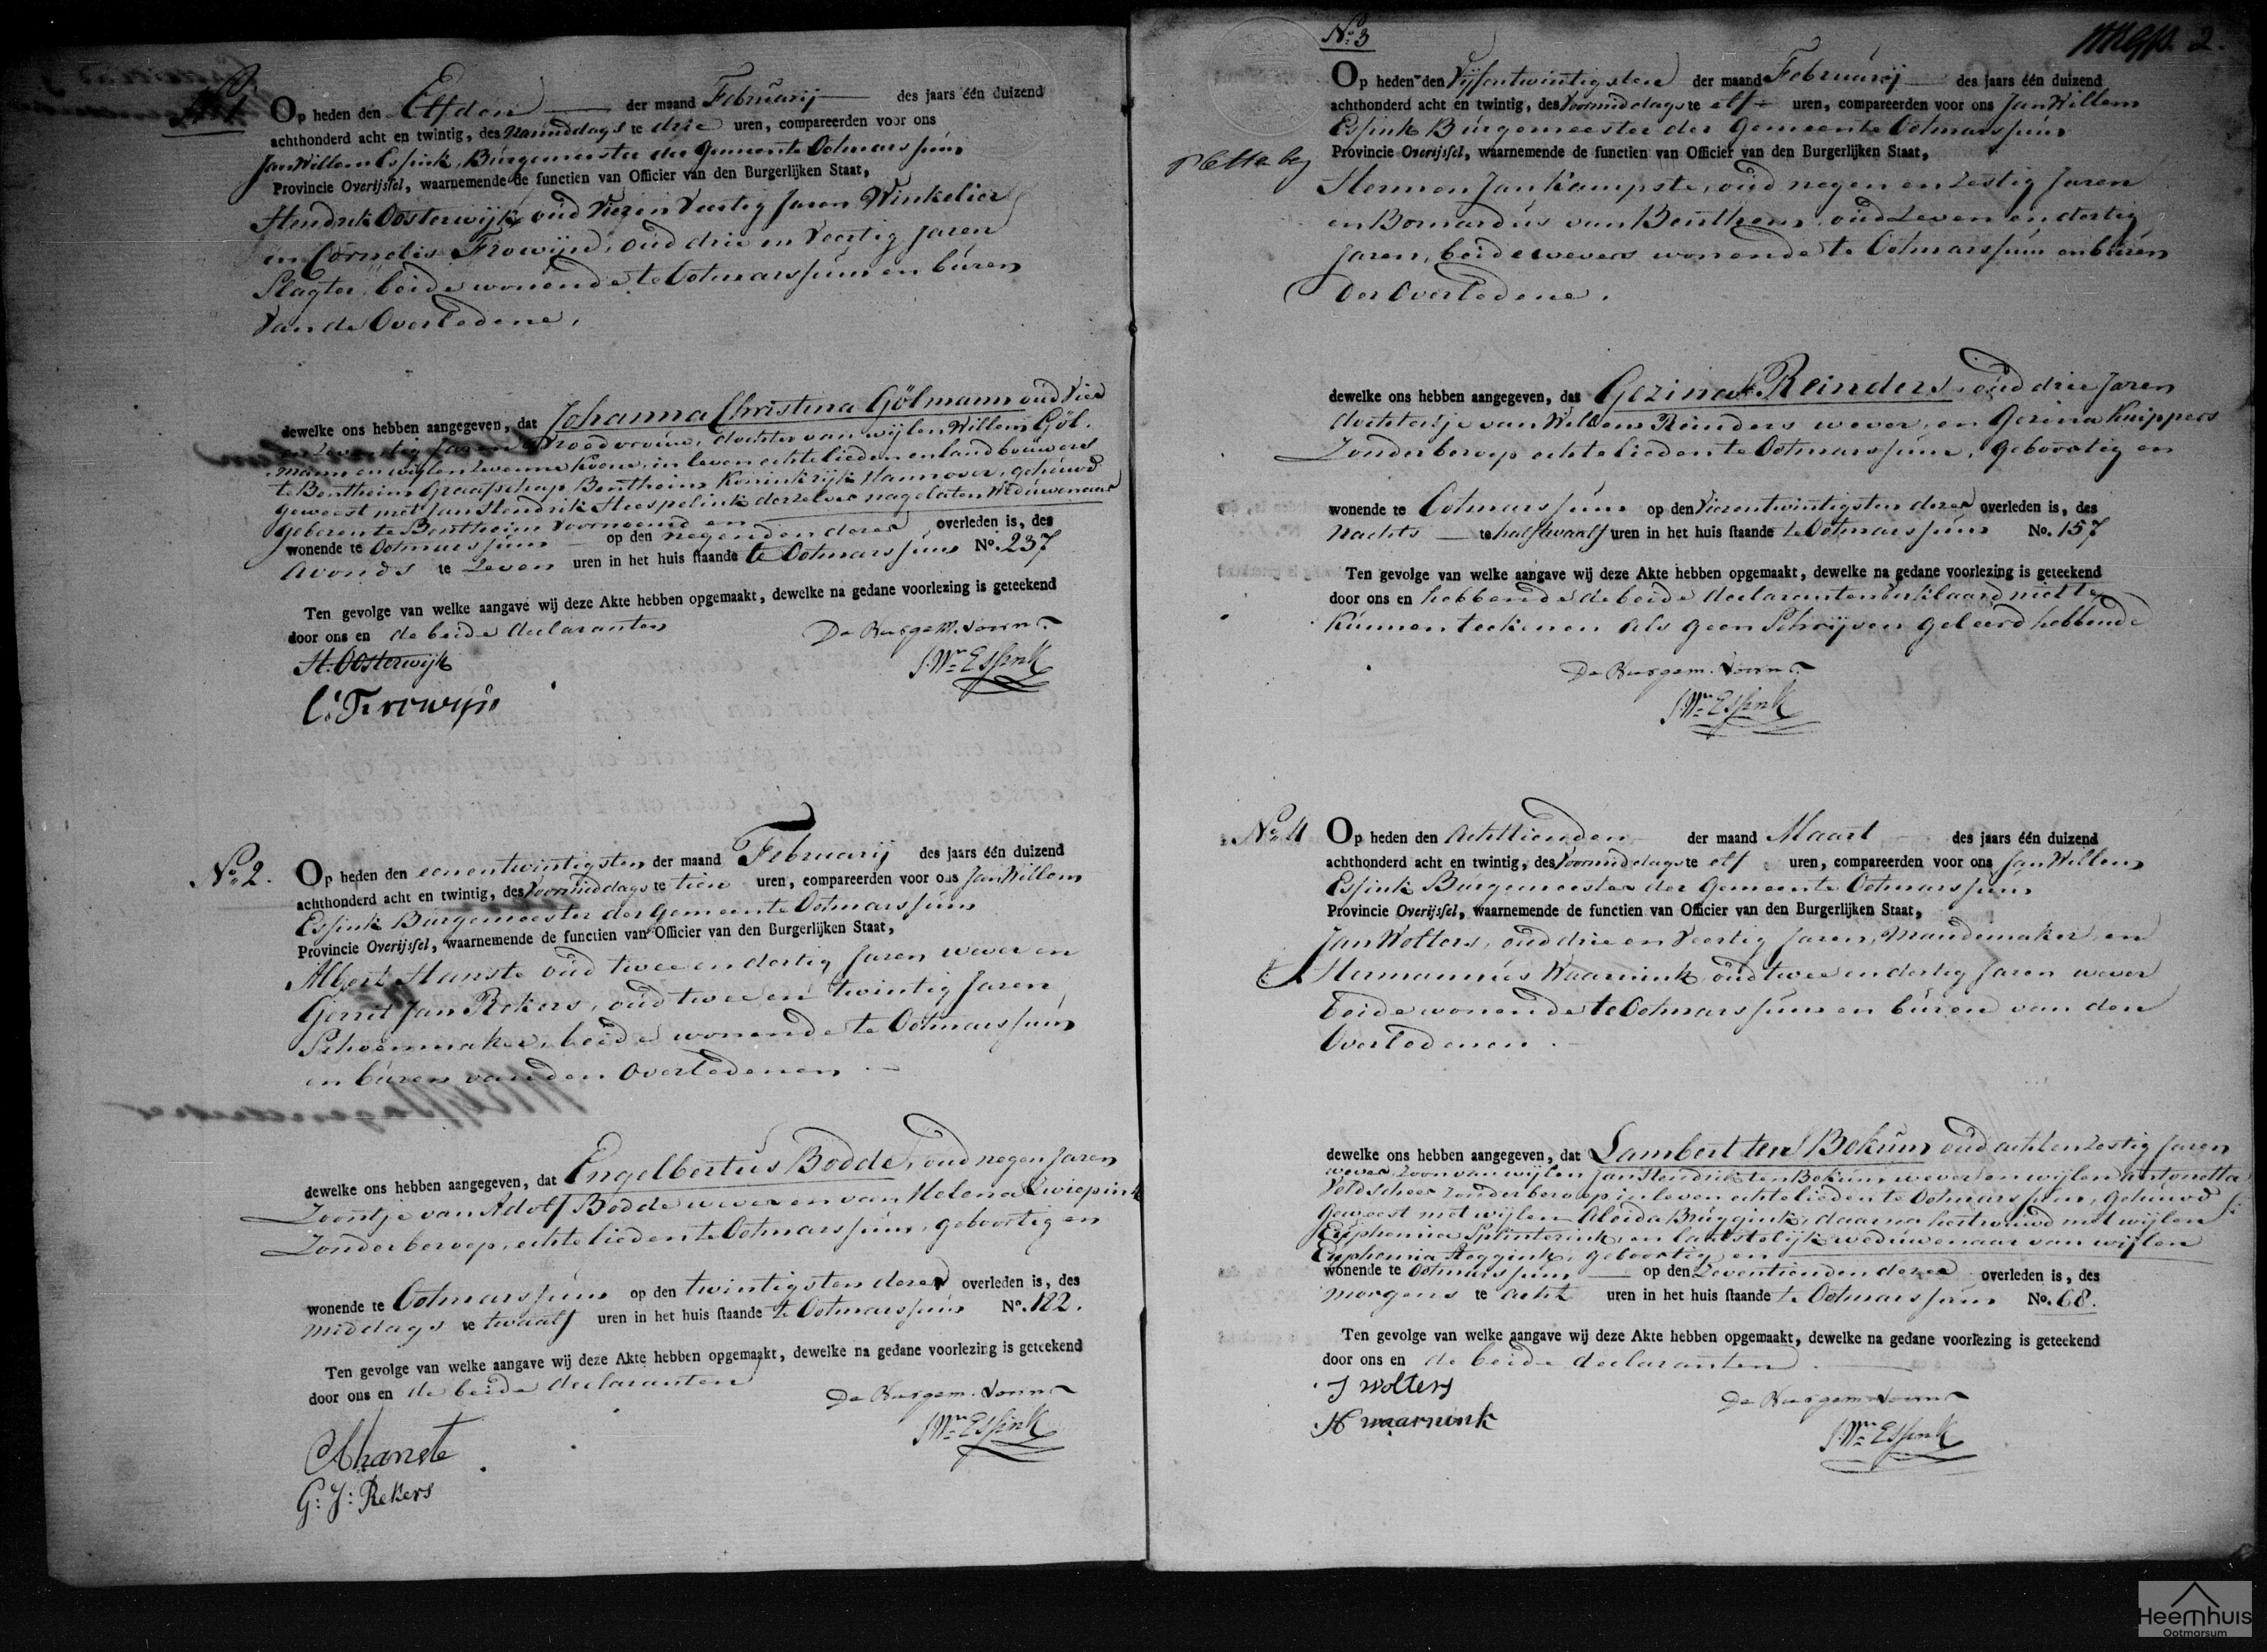 No. 1
Op heden den Elfden der maand Februarij des jaars één duizend
achthonderd acht en twintig, des Namiddags te drie uren, compareerden voor ons
Jan Willem Essink, Burgemeester der Gemeente Ootmarssum
Provincie Overijssel, waarnemende de functien van Officier van den Burgerlijken Staat,
Hendrik Oosterwijk, oud Vier en Veertig Jaren Winkelier
en Cornelis Frowijn, oud drie en Veertig Jaren
Slagter, beide wonende te Ootmarssum en buren
Van de Overledene,
dewelke ons hebben aangegeven, dat Johanna Christina Gölmann oud Vier
en Zeventig Jaren Vroedvrouw, dochter van wijlen Willem Göl-
mann en wijlen Zwenne Koene, in leven echtelieden en landbouwers
te Bentheim Graafschap Bentheim Koninkrijk Hannover, gehuwd
geweest met Jan Hendrik Heespelink derzelver nagelaten Weduwenaar
geboren te Bentheim voornoemd en
wonende te Ootmarssum op den negenden dezer overleden is, des
Avonds te Zeven uren in het huis staande te Ootmarssum No. 237
Ten gevolge van welke aangave wij deze Akte hebben opgemaakt, dewelke na gedane voorlezing is geteekend
door ons en de beide declaranten
De Burgem. Voorn.
H. Oosterwijk
J. Wm. Essink
C. Frowijn
No. 2.
Op heden den eenentwintigsten der maand Februarij des jaars één duizend
achthonderd acht en twintig, des Voormiddags te tien uren, compareerden voor ons Jan Willem
Essink Burgemeester der Gemeente Ootmarssum
Provincie Overijssel, waarnemende de functien van Officier van den Burgerlijken Staat,
Albert Hanste oud twee en dertig Jaren wever en
Gerrit Jan Rekers, oud twee en twintig Jaren
Schoenmaker, beide wonende te Ootmarssum
en buren van den Overledenen
dewelke ons hebben aangegeven, dat Engelbertus Bodde, oud negen Jaren
Zoontje van Adolf Bodde wever en van Helena Zwiepink
Zonder beroep, echtelieden te Ootmarssum, geboortig en
wonende te Ootmarssum op den twintigsten dezer overleden is, des
middags te twaalf uren in het huis staande te Ootmarssum No. 122.
Ten gevolge van welke aangave wij deze Akte hebben opgemaakt, dewelke na gedane voorlezing is geteekend
door ons en de beide declaranten
De Burgem. Voorn.
J. Wm. Essink
AHanste
G: J: Rekers
No. 3
2.
Op heden den Vijfentwintigsten der maand Februarij des jaars één duizend
achthonderd acht en twintig, des Voormiddags te elf uren, compareerden voor ons Jan Willem
Essink Burgemeester der Gemeente Ootmarssum
Provincie Overijssel, waarnemende de functien van Officier van den Burgerlijken Staat,
Hermen Jan Kampste, oud negen en Zestig Jaren
en Bernardus van Benthem, oud Zeven en dertig
Jaren, beide wevers wonende te Ootmarssum en buren
der Overledene.
dewelke ons hebben aangegeven, dat Gezina Reinders, oud drie Jaren
dochtertje van Willem Reinders wever, en Gezina Kuippers
Zonder beroep echtelieden te Ootmarssum, geboortig en
wonende te Ootmarssum op den Vierentwintigsten dezer overleden is, des
Nachts te half twaalf uren in het huis staande te Ootmarssum No. 157
Ten gevolge van welke aangave wij deze Akte hebben opgemaakt, dewelke na gedane voorlezing is geteekend
door ons en hebbende de beide declaranten verklaard niet te
kunnen teekenen als geen Schrijven geleerd hebbende
De Burgem. Voorn.
J. Wm. Essink
No. 4
Op heden den Achttienden der maand Maart des jaars één duizend
achthonderd acht en twintig, des Voormiddags te elf uren, compareerden voor ons Jan Willem
Essink Burgemeester der Gemeente Ootmarssum
Provincie Overijssel, waarnemende de functien van Officier van den Burgerlijken Staat,
Jan Wolters, oud drie en Veertig Jaren, Mandemaker, en
Hermannus Waarnink, oud twee en dertig Jaren wever
beide wonende te Ootmarssum en buren van den
Overledenen.
dewelke ons hebben aangegeven, dat Lambert ten Bokum oud acht en Zestig Jaren
wever, Zoon van wijlen Jan Hendrik ten Bokum wever en wijlen Antonetta
Veldscheer Zonder beroep in leven echtelieden te Ootmarssum, gehuwd
geweest met wijlen Aleida Bruggink, daarna hertrouwd met wijlen
Euphemia Splinterink, en laatstelijk weduwenaar van wijlen
Euphemia Reggink, geboortig en
wonende te Ootmarssum op den Zeventienden dezer overleden is, des
morgens te acht uren in het huis staande te Ootmarssum No. 68.
Ten gevolge van welke aangave wij deze Akte hebben opgemaakt, dewelke na gedane voorlezing is geteekend
door ons en de beide declaranten.
J Wolters
De Burgem. Voorn.
H waarnink
J. Wm. Essink
Heemhuis
Ootmarsum